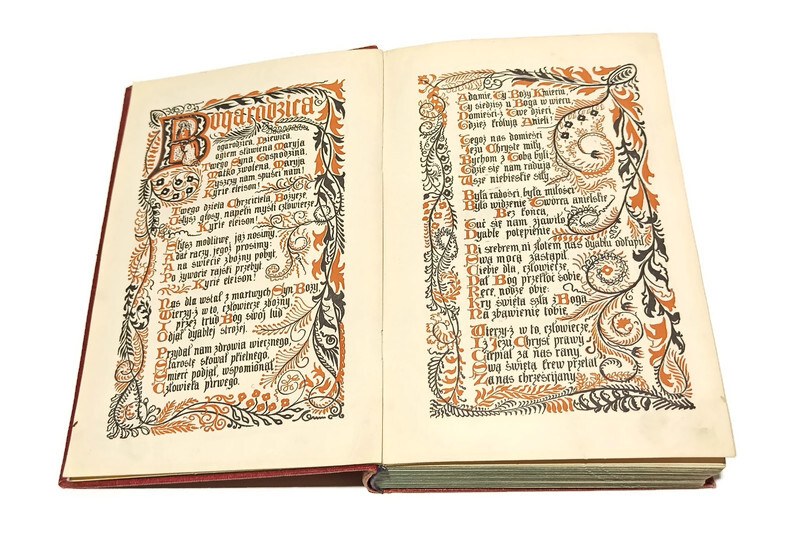 Bogarodzica
Bogarodzica, Dziewica,
Bogiem sławiena Maryja
Twego Syna, Gospodzina,
Matko zwolena, Maryja
Zyszczy nam, spuści nam!
Kyrie eleison!
Twego dziela Chrzciciela, Bożyce,
Usłysz głosy, napełń myśli człowiecze.
Kyrie eleison!
Słysz modlitwę, jąż nosimy,
Dać raczy, jegoż prosimy:
A na świecie zbożny pobyt,
Po żywocie rajski przebyt.
Kyrie eleison!
Nas dla wstał z martwych Syn Boży,
Wierzy-ż w to, człowiecze zbożny,
Iż przez trud Bog swój lud
Odjął dyablej strożej.
Przydał nam zdrowia wiecznego,
Starostę skował pkielnego,
Śmierć podjął, wspomionął
Człowieka pirwego.
Adamie, Ty Boży Kmieciu,
Ty siedzisz u Boga w wiecu,
Domieści-ż Twe dzieci,
Gdzież królują Anieli!
Tegoż nas domieści
Jezu Chryste miły,
Bychom z Tobą byli,
Gdzie się nam radują
Wsze niebieskie siły.
Była radość, była miłość,
Było widzenie Twórca anielskie
Bez końca,
Tuć się nam zjawiło
Dyable potępienie.
Ni srebrem ni złotem nas dyabłu odkupił,
Swą mocą zastąpił.
Ciebie dla, człowiecze,
Dał Bog przekłóć sobie,
Ręce, nodze obie.
Kry święta szła z Boga
Na zbawienie tobie.
Wierzy-ż w to, człowiecze,
Iż Jezu Chryst prawy
Cirpiał za nas rany,
Swą świętą krew przelał
Za nas chrześcijany.